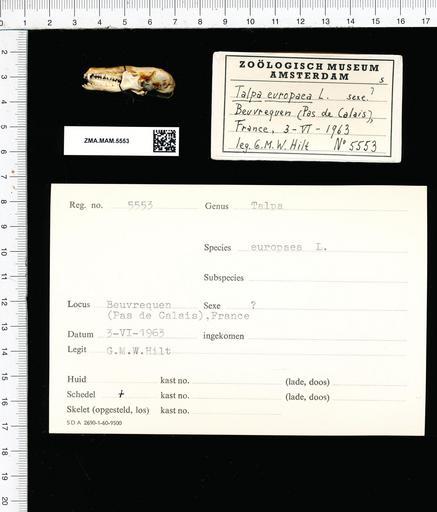 0 1 2 3 4 5 6 7 8 9 10 11 12 13 14 15 16 17
ZOÖLOGISCH MUSEUM
AMSTERDAM
s
Talpa europaea L. sexe. ?
Beuvrequen (Pas de Calais),
France, 3-VI-1963
leg. G.M.W. Hilt No 5553
ZMA.MAM.5553
Reg. no. 5553 Genus Talpa
Species europaea L.
Subspecies
Locus Beuvrequen Sexe ?
(Pas de Calais), France
Datum 3-VI-1963 ingekomen
Legit G.M.W.Hilt
Huid kast no. (lade, doos)
Schedel + kast no. (lade, doos)
Skelet (opgesteld, los) kast no.
S D A 2690-1-60-9500
2
3
4
5
6
7
8
9
10
11
12
13
14
15
16
17
18
19
20